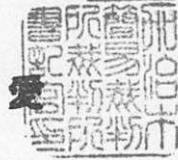 加治木
簡易裁判
所裁判所
書記官印
愛